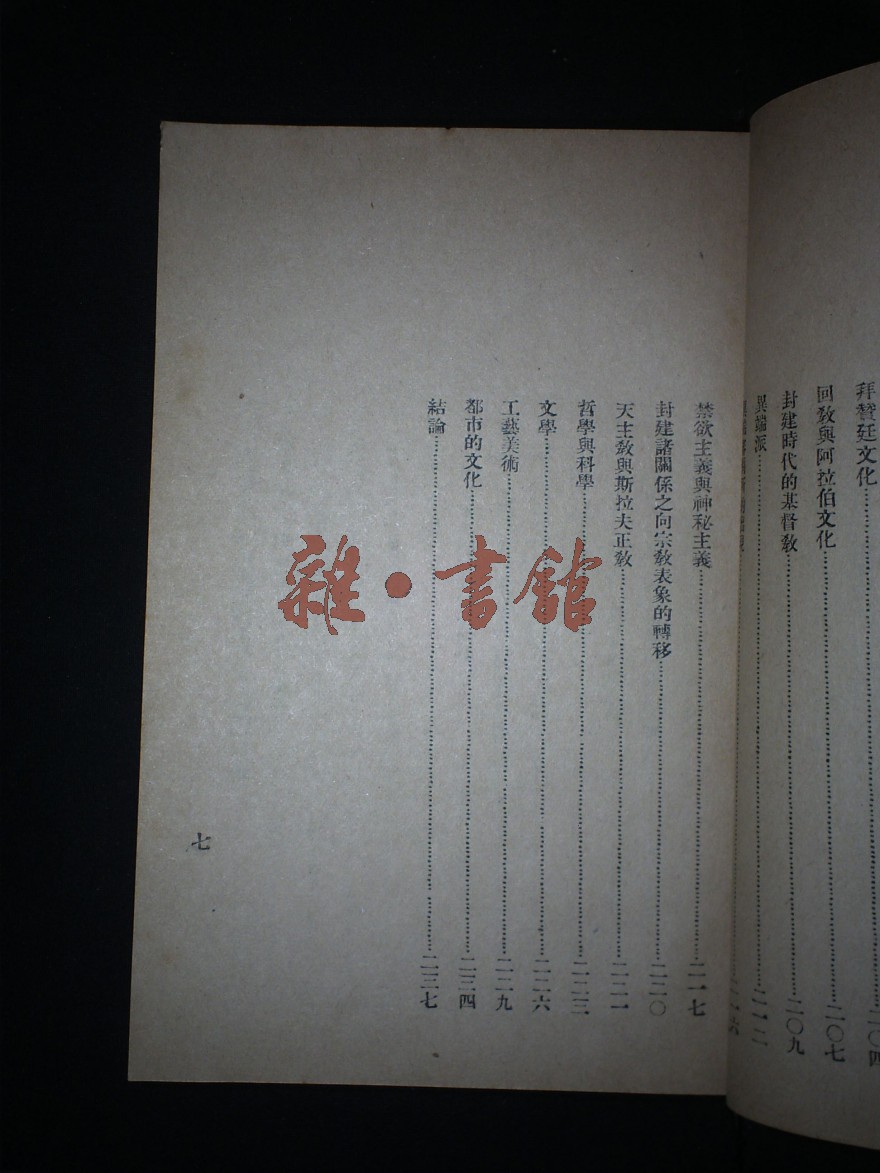 拜賛廷文化…二〇四
回教與阿拉伯文化…二〇七
封建時代的基督教…二〇九
異端派…二一二
禁欲主義與神秘主義…二一七
封建諸關係之向宗教表象的轉移…二二〇
天主教與斯拉夫正教…二二一
哲學與科學…二二三
文學…二二六
工藝美術…二二九
都市的文化…二三四
結論…二三七
七
雜·書館